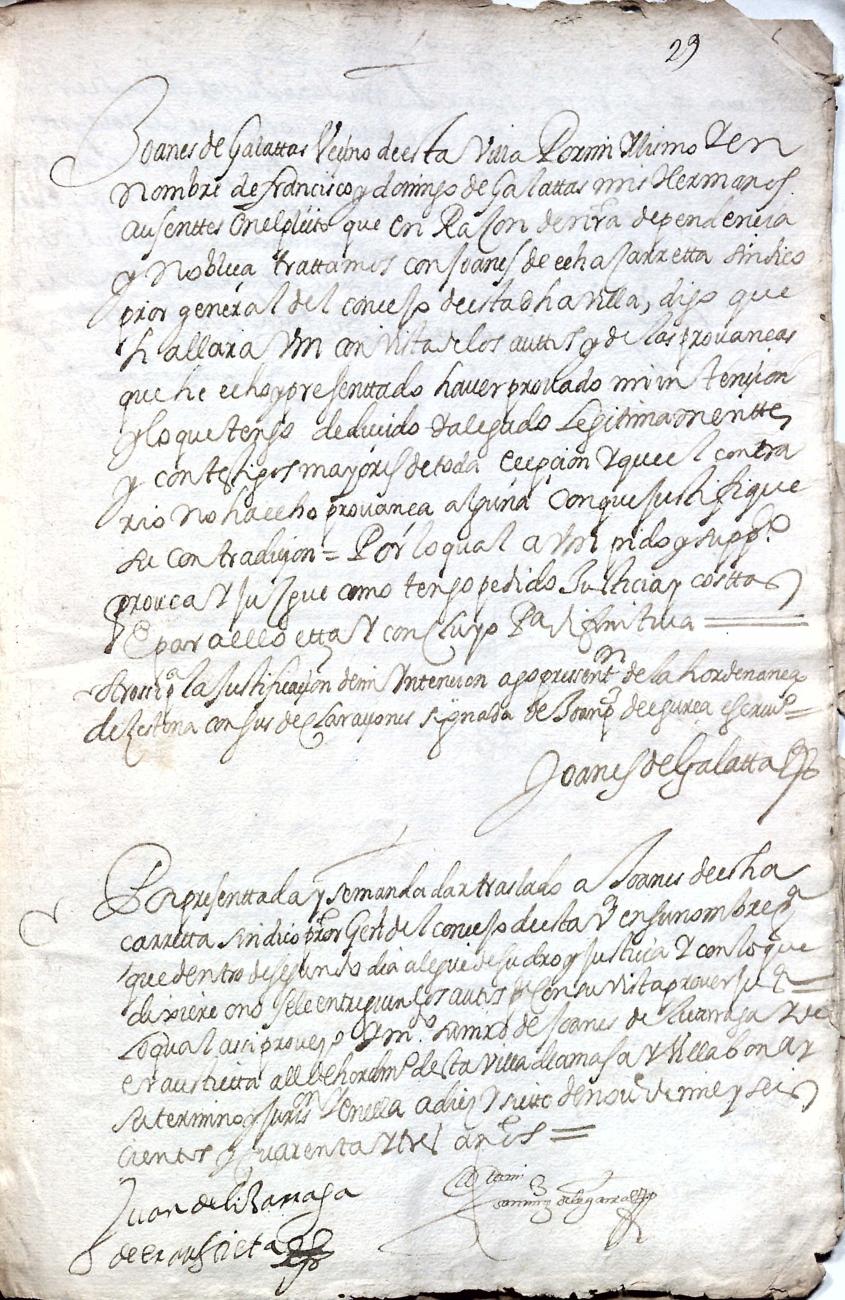 29
Joanes de Galattas Veçino de esta Villa Por mi Mismo Y en
nombre de francisco y domingo de Galattas mis Hermanos
ausenttes En el pleito que en Razon de nra dependencia
y nobleça trattamos con Joanes de echaçarretta sindico
pror general del concejo de esta dha villa, digo que
hallara Vm con vista de los auttos y de las provanças
que he echo y presenttado haver provado mi intension
y lo que tengo deducido Y alegado Legitimamentte,
y con testigos mayores de toda Ecepçion Y que el contra
rio no ha echo provança alguna Con que Justifique
su contradiçion = Por lo qual a Vm pido y suppco
provea Y Juzgue como tengo pedido Justicia y costtas
E para ello ettta Y concluyo Pa difinitiva
Otrossi pa la Justificaçion de mi Yntencion ago pressentn de la hordenança
de Zestona con sus declaraçiones signada de de egurça escrivo =
Joanes de Galatta
Por presenttada y se manda dar traslado a Joanes de echa
carretta sindico pror Genl del concejo de esta Va en su nombre pa
que dentro de segundo dia alegue de su dro y Justicia Y con lo que
dixiere o no se le entreguen los autos pa con su vista proveer Jua =
Lo qual assi proveyo Su md. el sr. Joanes de Liçarraga Y de
erausquieta allde hordino de esta villa de amasa Y Villabona y
su termino y Jurison En ella a diez Y siete de nove de mil y seis
cientos y quarenta Y tres años =
Juan de liZarraga
de erausquieta